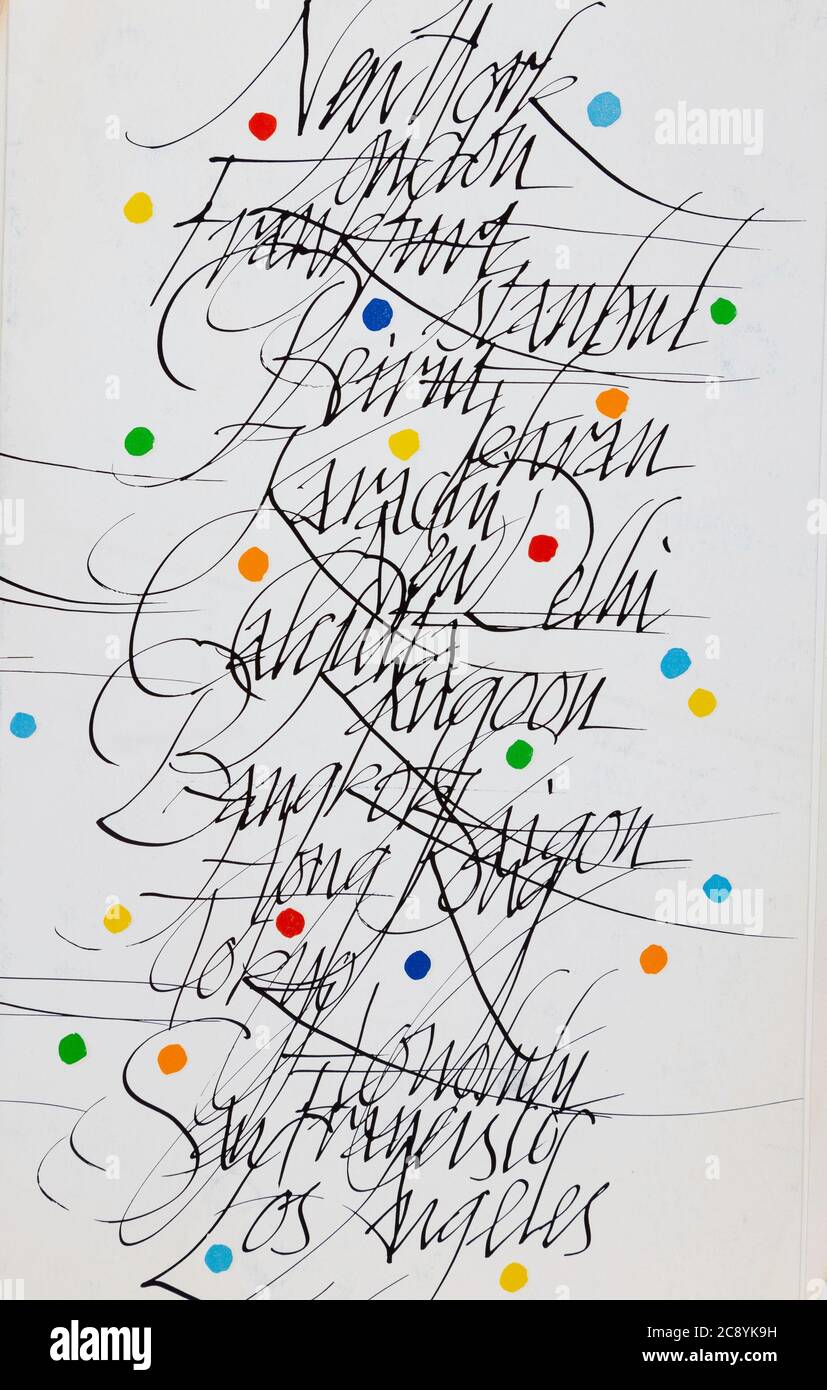 New York
London
Frankfurt
Istanbul
Beirut
Tehran
Karachi
New Delhi
Calcutta
Rangoon
Bangkok
Saigon
Hong Kong
Tokyo
Honolulu
San Francisco
Los Angeles
alamy
alamy
Image ID: 2C8YK9H
www.alamy.com